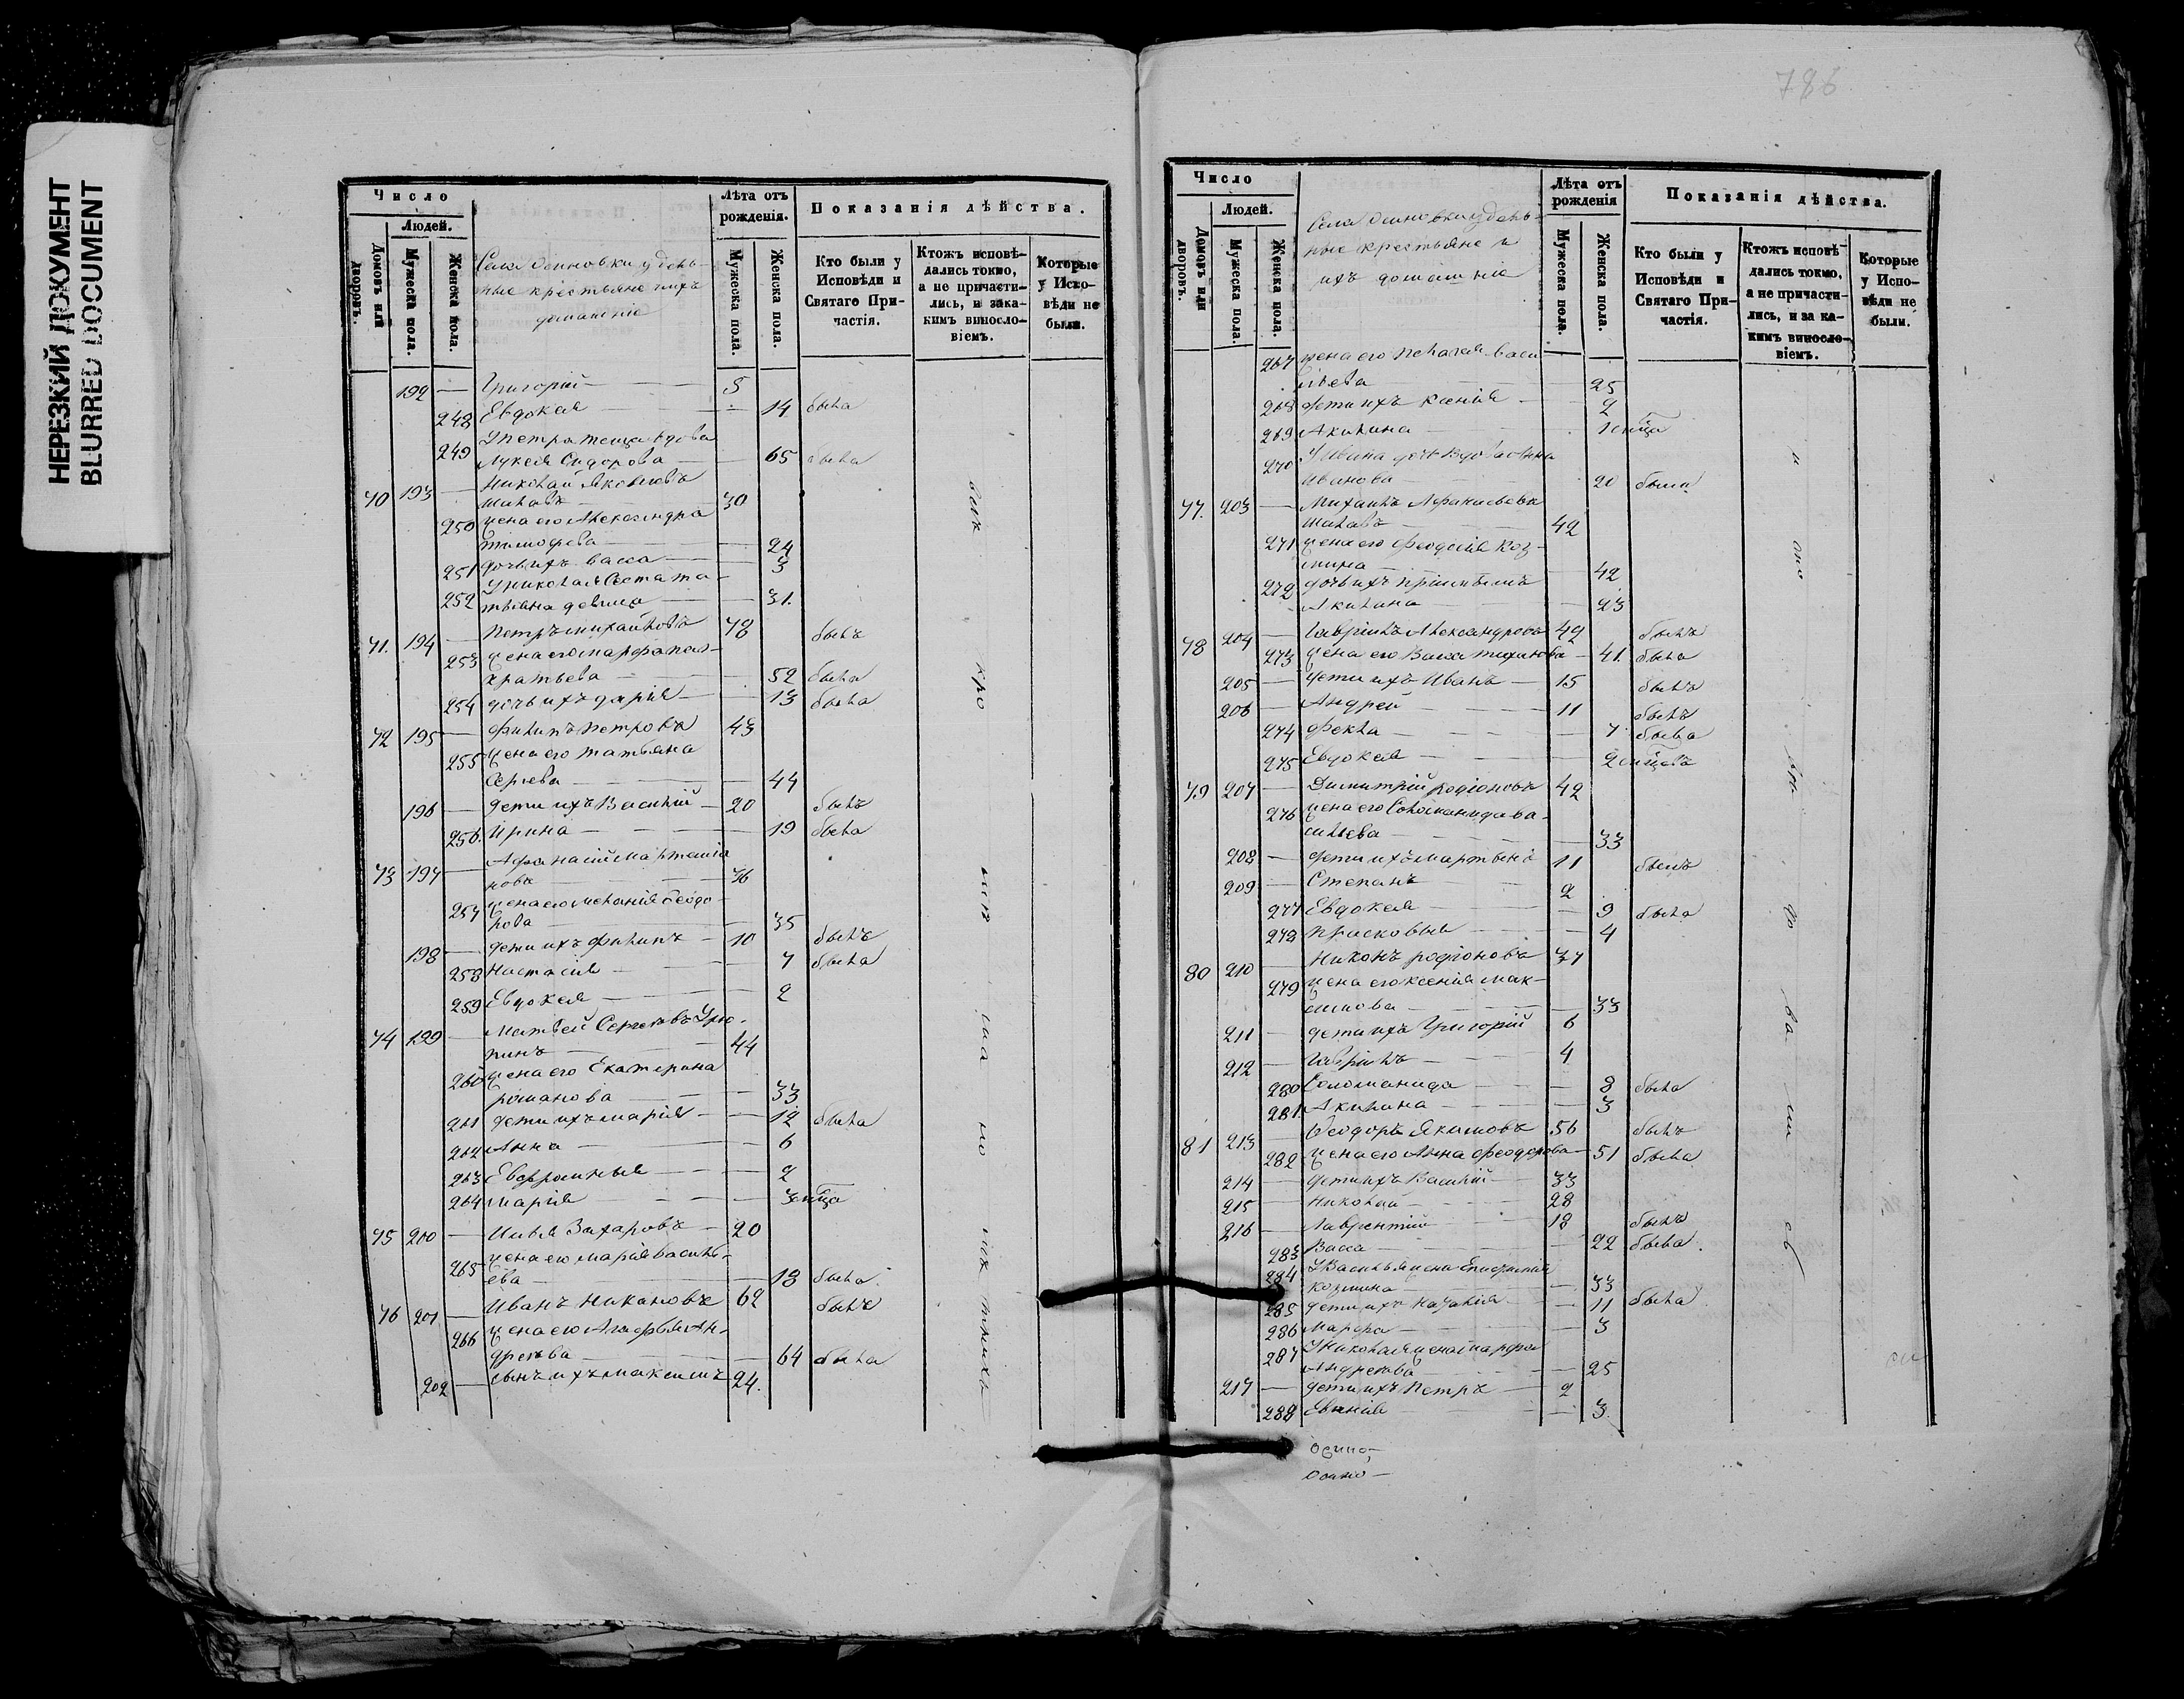 НЕРЕЗКИЙ ДОКУМЕНТ
BLURRED DOCUMENT
Число
Людей.
Домовъ или дворовъ.
Мужеска пола.
Женска пола.
Села Осиновки удель-
ные крестьяне и ихъ
домашніе
Лѣта отъ рожденія.
Мужеска пола.
Женска пола.
Показанія дѣйства.
Кто были у Исповѣди и Святаго При-частія.
Ктожъ исповѣ-дались токмо, а не причасти-лись, и за ка-кимъ винослo-віемъ.
Которые у Испо-вѣди не были.
192 — Григорій — 5
248 Евдокея — 14 была
У Петра теща вдова
249 Лукея Сидорова — 65 была
70 193 — Николай Яковлевъ
Шаховъ — 30
250 жена его Александра
Тимофева — 24
251 дочь ихъ Васса — 3
252 У Николая Сестра Та-
тьяна девица — 31.
71. 194 — Петръ Михайловъ 78 былъ
253 жена его Марфа Пан-
кратьева — 52 была
254 дочь ихъ Дарія — 13 была
72 195 — Филипъ Петровъ 43
255 жена его Татьяна
Сергева — 44
196 — дети ихъ Василій — 20 былъ
256. Ирина — 19 была
73 197 — Афанасій Мартемія
новъ — 36
257 жена его Меланія Феодо-
рова — 35
198 — дети ихъ Филипъ — 10 былъ
258 Настасія — 7 была
259 Евдокея — 2
74 199 — Матвей Сергеевъ Урю-
пинъ — 44
260 жена его Екатерина
Романова — 33
261 дети ихъ Марія — 12 была
262 Анна — 6
263 Евфросинья — 2
264 Марія —
75 200 — Илья Захаровъ — 20
265 жена его Марія Василь-
ева — 18 была.
76 201 — Иванъ Никановъ 62 былъ
266 жена его Агафья Ан-
дреева — 64 была
202 — сынъ ихъ Максимъ 24.
786
Число
Людей.
Домовъ или дворовъ.
Мужеска пола.
Женска пола.
Села Осиновки удель-
ные крестьяне и
ихъ домашніе
Лѣта отъ рожденія
Мужеска пола.
Женска пола.
Показанія дѣйства.
Кто были у Исповѣди и Святаго При-частія.
Ктожъ исповѣ-дались токмо, а не причасти-лись, и за ка-кимъ винослo-віемъ.
Которые у Испо-вѣди не были.
267 жена его Пелагея Васи
льева — 25
268 дети ихъ Ксенія — 2
269 Акилина —
270 У Ивана дочь вдова
Иванова — 20 была
77. 203 — Михаилъ Афанасьевъ
Шаховъ — 42
271 жена его Феодосія Коз-
мина — 42
272 дочь ихъ
Акилина — 23
78 204 — Гаврілъ Александровъ 42 былъ
273 жена его Васса Тиханова — 41. была
205 — дети ихъ Иванъ — 15 былъ
206 — Андрей — 11 былъ
274 Фекла — 7 была
275 Евдокея —
79 207 — Димитрій Родіоновъ 42
276 жена его Соломанида Ва-
сильева — 33
208 — дети ихъ Мартынъ 11 былъ
209 — Степанъ — 2
277 Евдокея — 9 была
278 Прасковья — 4
80 210 — Никонъ Родіоновъ 37
279 жена его Ксенія Мак-
симова — 33
211 — дети ихъ Григорій 6
212 — Гаврілъ — 4
280 Соломанида — 8 была
281. Акилина — 3
81 213 — Феодоръ Якимовъ 56 былъ
282 жена его Анна Феодорова — 51 была
214 — дети ихъ Василій — 33
215 — Николай — 28
216 — Лаврентій — 18 былъ
283 Васса — 22 была.
284 У Василья жена
Козмина — 33
285 дети ихъ Наталія — 11 была
286 Марфа — 3
287 У Николая жена Марфа
Андреева — 25
217 — дети ихъ Петръ — 2
288 Евгенія — 3.